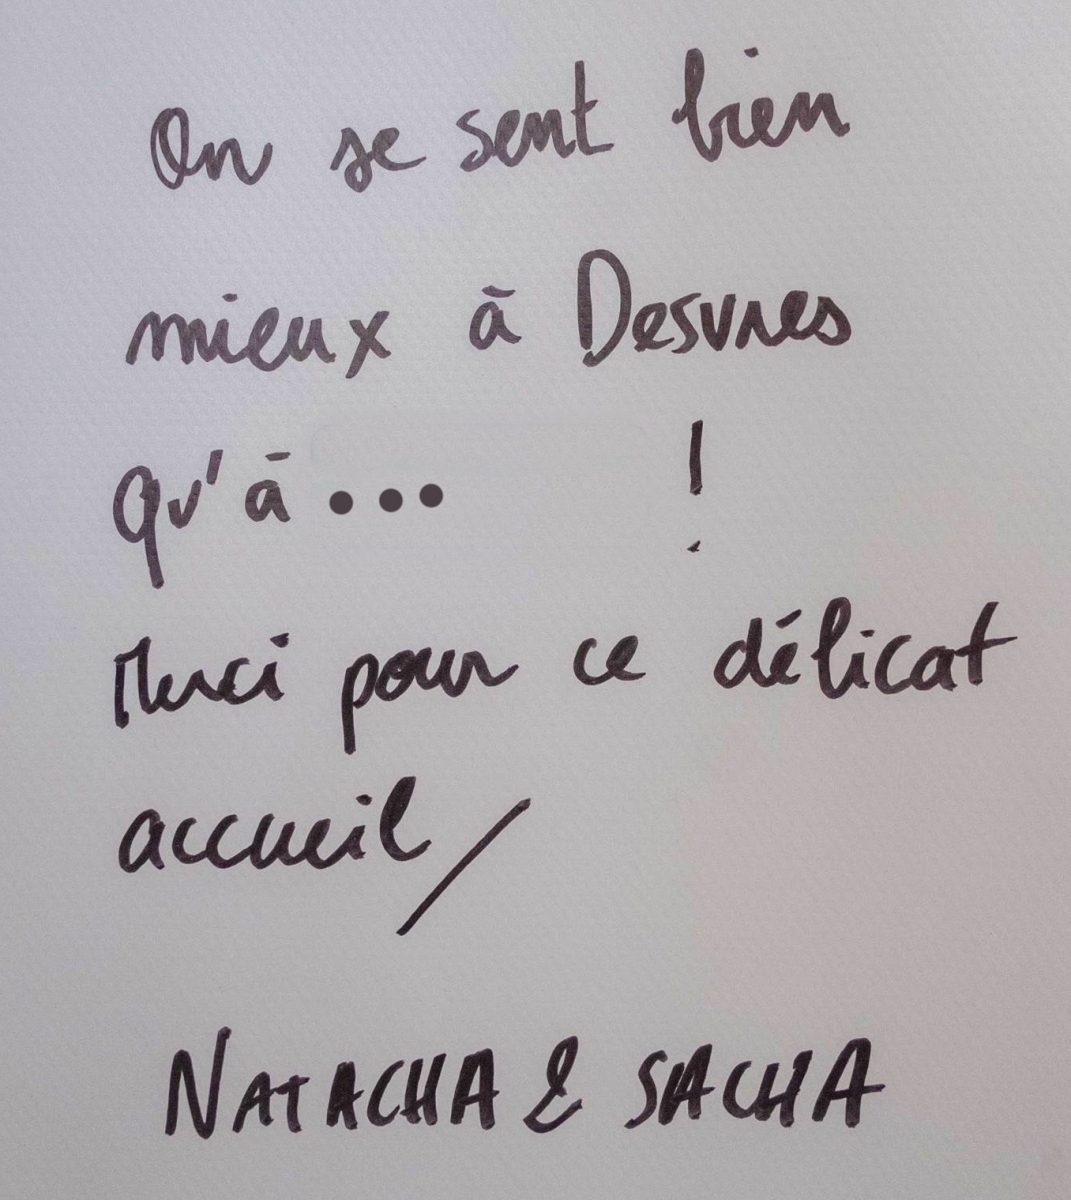 On se sent bien
mieux à Desvres
qu'à ... !
Merci pour ce délicat
accueil/
NATACHA & SACHA